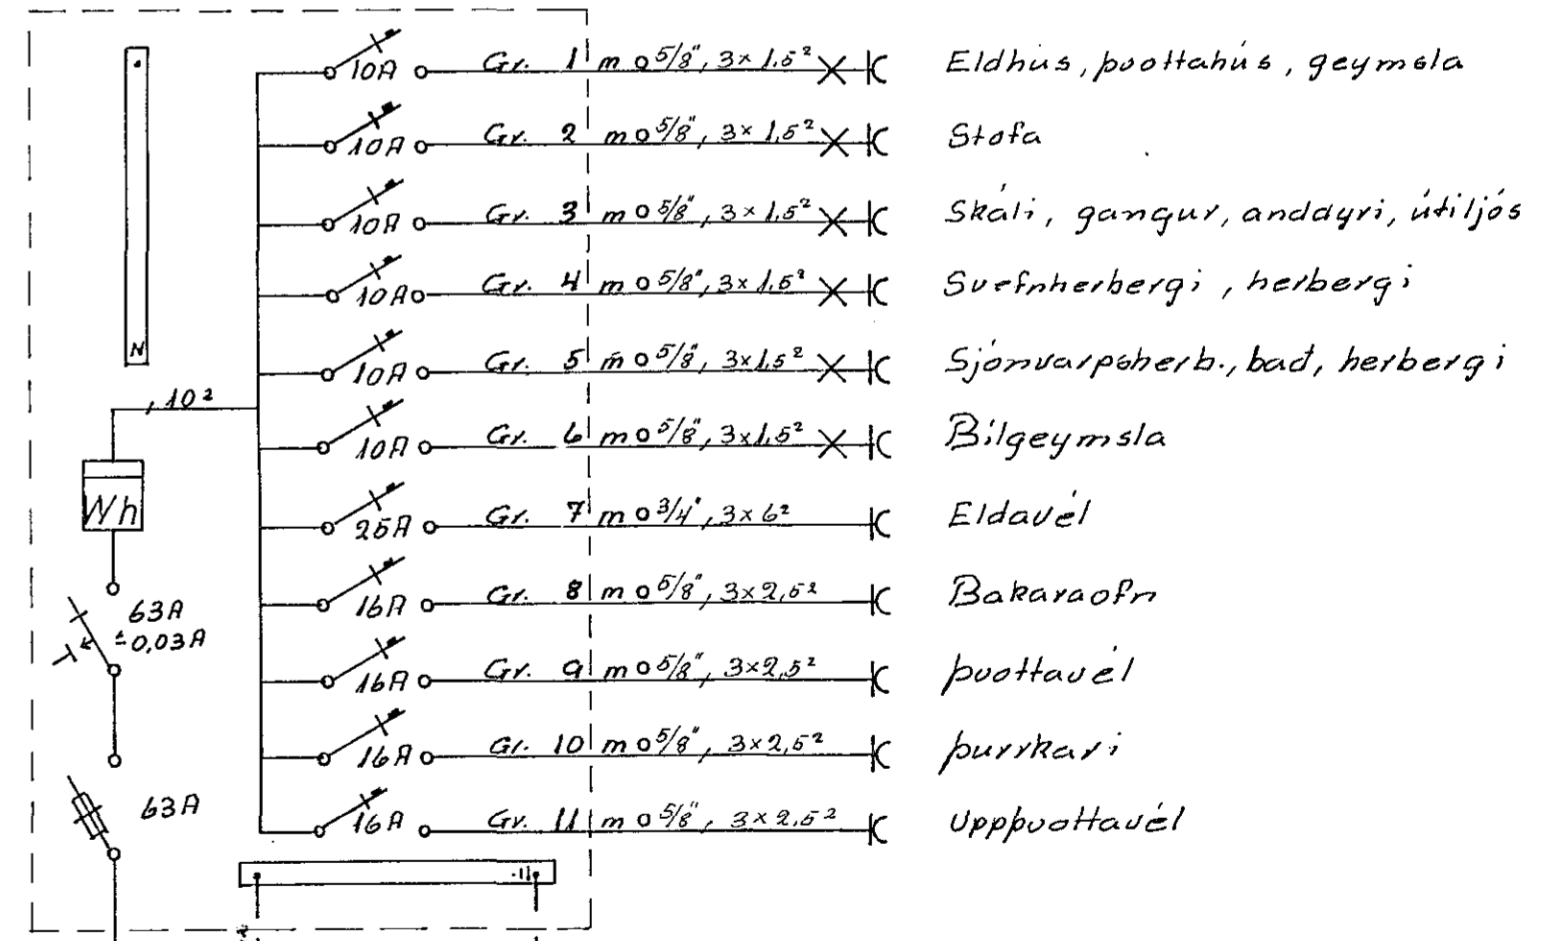 10A Gr. 1 m o 5/8", 3×1.5² Eldhús, þvottahús, geymsla
10A Gr. 2 m o 5/8", 3×1,5² Stofa
10A Gr. 3 m o 5/8", 3×1,5² Skáli, gangur, anddyri, útiljós
10A Gr. 4 m o 5/8", 3×1.5² Svefnherbergi, herbergi
N
10A Gr. 5 m o 5/8", 3×1,5² Sjónvarpsherb., bað, herbergi
10²
10A Gr. 6 m o 5/8", 3×1,5² Bílgeymsla
Wh
25A Gr. 7 m o 3/4", 3×6² Eldavél
16A Gr. 8 m o 5/8", 3×2,5² Bakaraofn
63A
±0,03A
16A Gr. 9 m o 5/8", 3×2,5² þvottavél
16A Gr. 10 m o 5/8", 3×2,5² þurrkari
63A
16A Gr. 11 m o 5/8", 3×2,5² Uppþvottavél